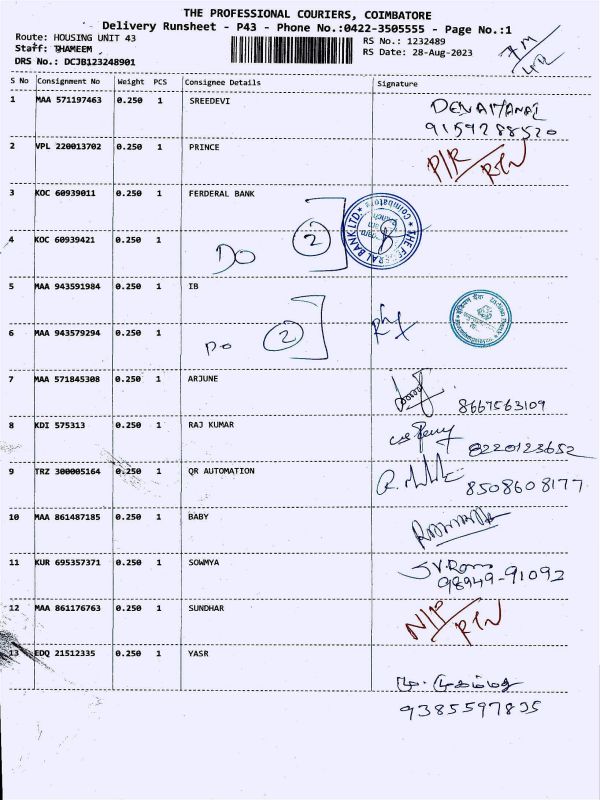 THE PROFESSIONAL COURIERS, COIMBATORE
Delivery Runsheet - P43 - Phone No.:0422-3505555 - Page No.:1
Route: HOUSING UNIT 43
RS No.: 1232489
Staff: THAMEEM
RS Date: 28-Aug-2023
DRS No.: DCJB123248901
S No Consignment No Weight PCS Consignee Details Signature
1 MAA 571197463 0.250 1 SREEDEVI
9159288520
2 VPL 220013702 0.250 1 PRINCE P/R RTN
3 KOC 60939011 0.250 1 FERDERAL BANK
4 KOC 60939421 0.250 1 DO 2
THE FEDERAL BANK LTD. Coimbatore
5 MAA 943591984 0.250 1 IB
6 MAA 943579294 0.250 1 DO 2
7 MAA 571845308 0.250 1 ARJUNE
8667563109
8 KDI 575313 0.250 1 RAJ KUMAR
8220123652
9 TRZ 300005164 0.250 1 QR AUTOMATION
8508608177
10 MAA 861487185 0.250 1 BABY
11 KUR 695357371 0.250 1 SOWMYA
98949-91092
12 MAA 861176763 0.250 1 SUNDHAR N/P RTN
13 EDQ 21512335 0.250 1 YASR
9385597835